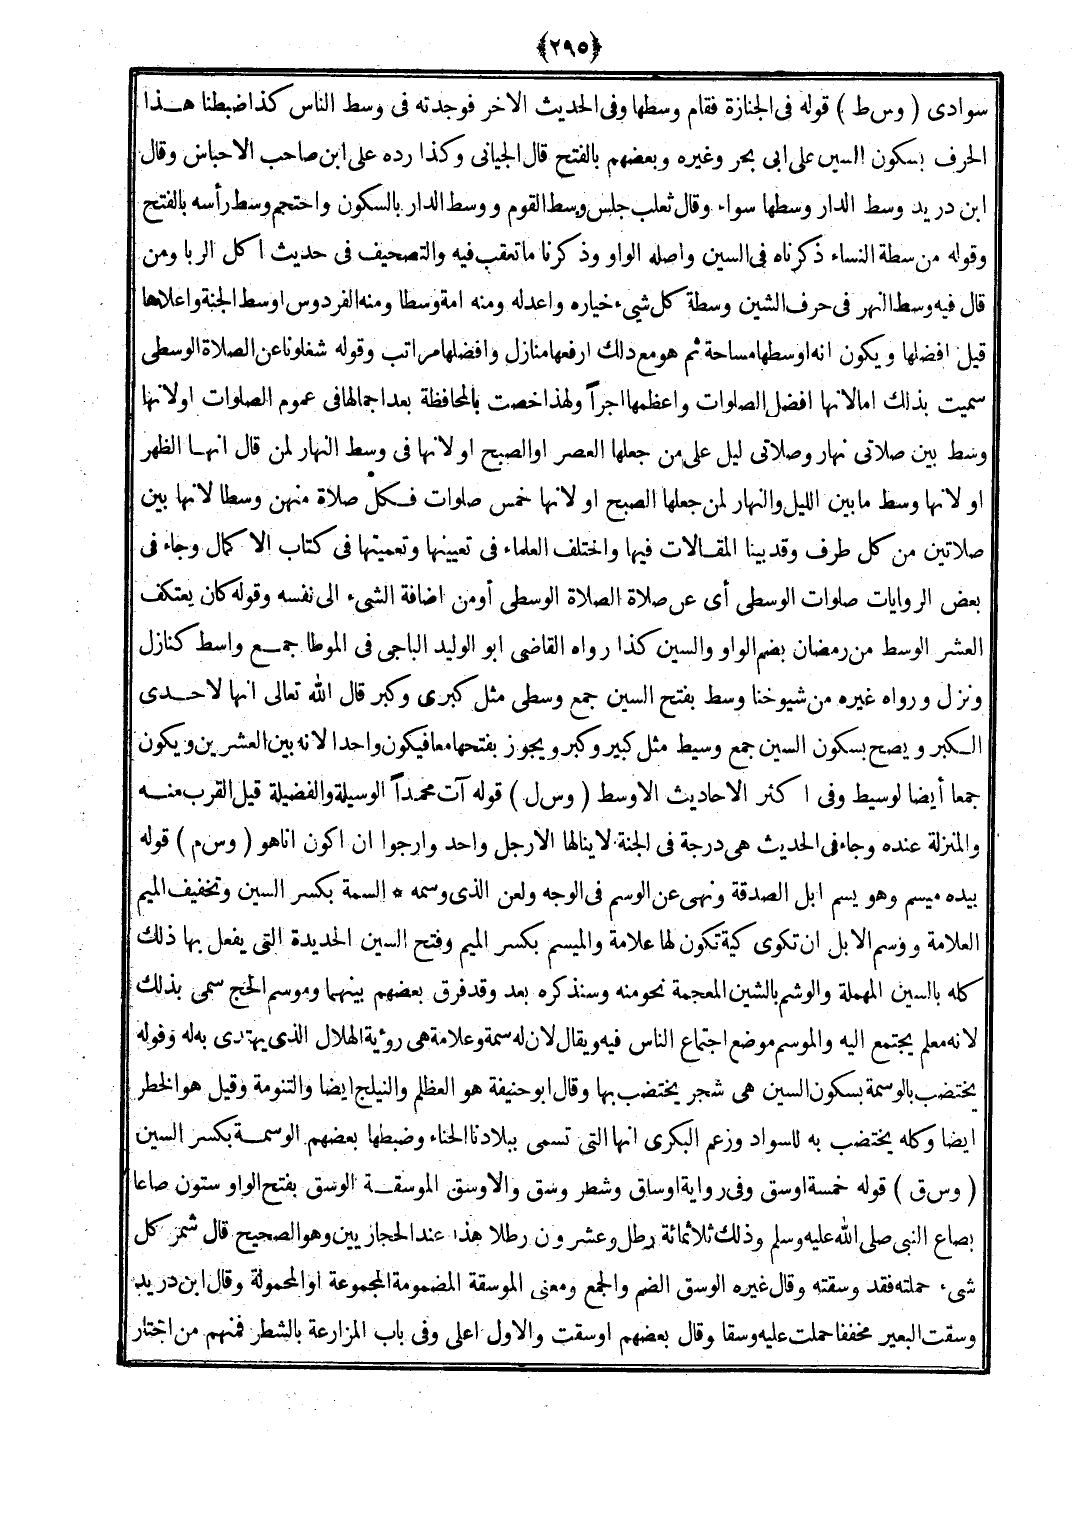 ﴿٢٩٥﴾
سوادى ( وس ط ) قوله فى الجنازة فقام وسطها وفى الحديث الاخر فوجدته فى وسط الناس كذا ضبطنا هذا
الحرف بسكون السين على ابى بحر وغيره وبعضهم بالفتح قال الجيانى وكذا رده على ابن صاحب الاحباس وقال
ابن دريد وسط الدار وسطها سواء وقال ثعلب جلس وسط القوم و وسط الدار بالسكون واحتجم وسط رأسه بالفتح
وقوله من سطة النساء ذكرناه فى السين واصله الواو وذكرنا ما تعقب فيه والتصحيف فى حديث اكل الربا ومن
قال فيه وسط النهر فى حرف الشين وسطة كل شىء خياره واعدله ومنه امة وسطا ومنه الفردوس اوسط الجنة واعلاها
قيل افضلها ويكون انه اوسطها مساحة ثم هو مع ذلك ارفعها منازل وافضلها مراتب وقوله شغلونا عن الصلاة الوسطى
سميت بذلك اما لانها افضل الصلوات واعظمها اجراً ولهذا خصت بالمحافظة بعد اجمالها فى عموم الصلوات او لانها
وسط بين صلاتى نهار وصلاتى ليل على من جعلها العصر او الصبح او لانها فى وسط النهار لمن قال انها الظهر
او لانها وسط ما بين الليل والنهار لمن جعلها الصبح او لانها خمس صلوات فكل صلاة منهن وسطا لانها بين
صلاتين من كل طرف وقد بينا المقالات فيها واختلف العلماء فى تعيينها وتعميتها فى كتاب الاكمال وجاء فى
بعض الروايات صلوات الوسطى أى عن صلاة الصلاة الوسطى أو من اضافة الشىء الى نفسه وقوله كان يعتكف
العشر الوسط من رمضان بضم الواو والسين كذا رواه القاضى ابو الوليد الباجى فى الموطا جمع واسط كنازل
ونزل ورواه غيره من شيوخنا وسط بفتح السين جمع وسطى مثل كبرى وكبر قال الله تعالى انها لاحدى
الكبر ويصح بسكون السين جمع وسيط مثل كبير وكبر ويجوز بفتحها معا فيكون واحدا لانه بين العشرين ويكون
جمعا أيضا لوسيط وفى اكثر الاحاديث الاوسط ( وس ل ) قوله آت محمداً الوسيلة والفضيلة قيل القرب منه
والمنزلة عنده وجاء فى الحديث هى درجة فى الجنة لا ينالها الا رجل واحد وارجوا ان اكون انا هو ( وس م ) قوله
بيده ميسم وهو يسم ابل الصدقة ونهى عن الوسم فى الوجه ولعن الذى وسمه * السمة بكسر السين وتخفيف الميم
العلامة ووسم الابل ان تكوى كية تكون لها علامة والميسم بكسر الميم وفتح السين الحديدة التى يفعل بها ذلك
كله بالسين المهملة والوشم بالشين المعجمة نحو منه وسنذكره بعد وقد فرق بعضهم بينهما وموسم الحج سمى بذلك
لانه معلم يجتمع اليه والموسم موضع اجتماع الناس فيه ويقال لان له سمة وعلامة هى رؤية الهلال الذى يهتدى به له وقوله
يختضب بالوسمة بسكون السين هى شجر يختضب بها وقال ابو حنيفة هو العظلم والنيلج ايضا والتنومة وقيل هو الخطر
ايضا وكله يختضب به للسواد وزعم البكرى انها التى تسمى ببلادنا الحناء وضبطها بعضهم الوسمة بكسر السين
( وس ق ) قوله خمسة اوسق وفى رواية اوساق وشطر وسق والاوسق الموسقة الوسق بفتح الواو ستون صاعا
بصاع النبى صلى الله عليه وسلم وذلك ثلاثمائة رطل وعشرون رطلا هذا عند الحجازيين وهو الصحيح قال شمر كل
شىء حملته فقد وسقته وقال غيره الوسق الضم والجمع ومعنى الموسقة المضمومة المجموعة او المحمولة وقال ابن دريد
وسقت البعير مخففا حملت عليه وسقا وقال بعضهم اوسقت والاول اعلى وفى باب المزارعة بالشطر فمنهم من اختار